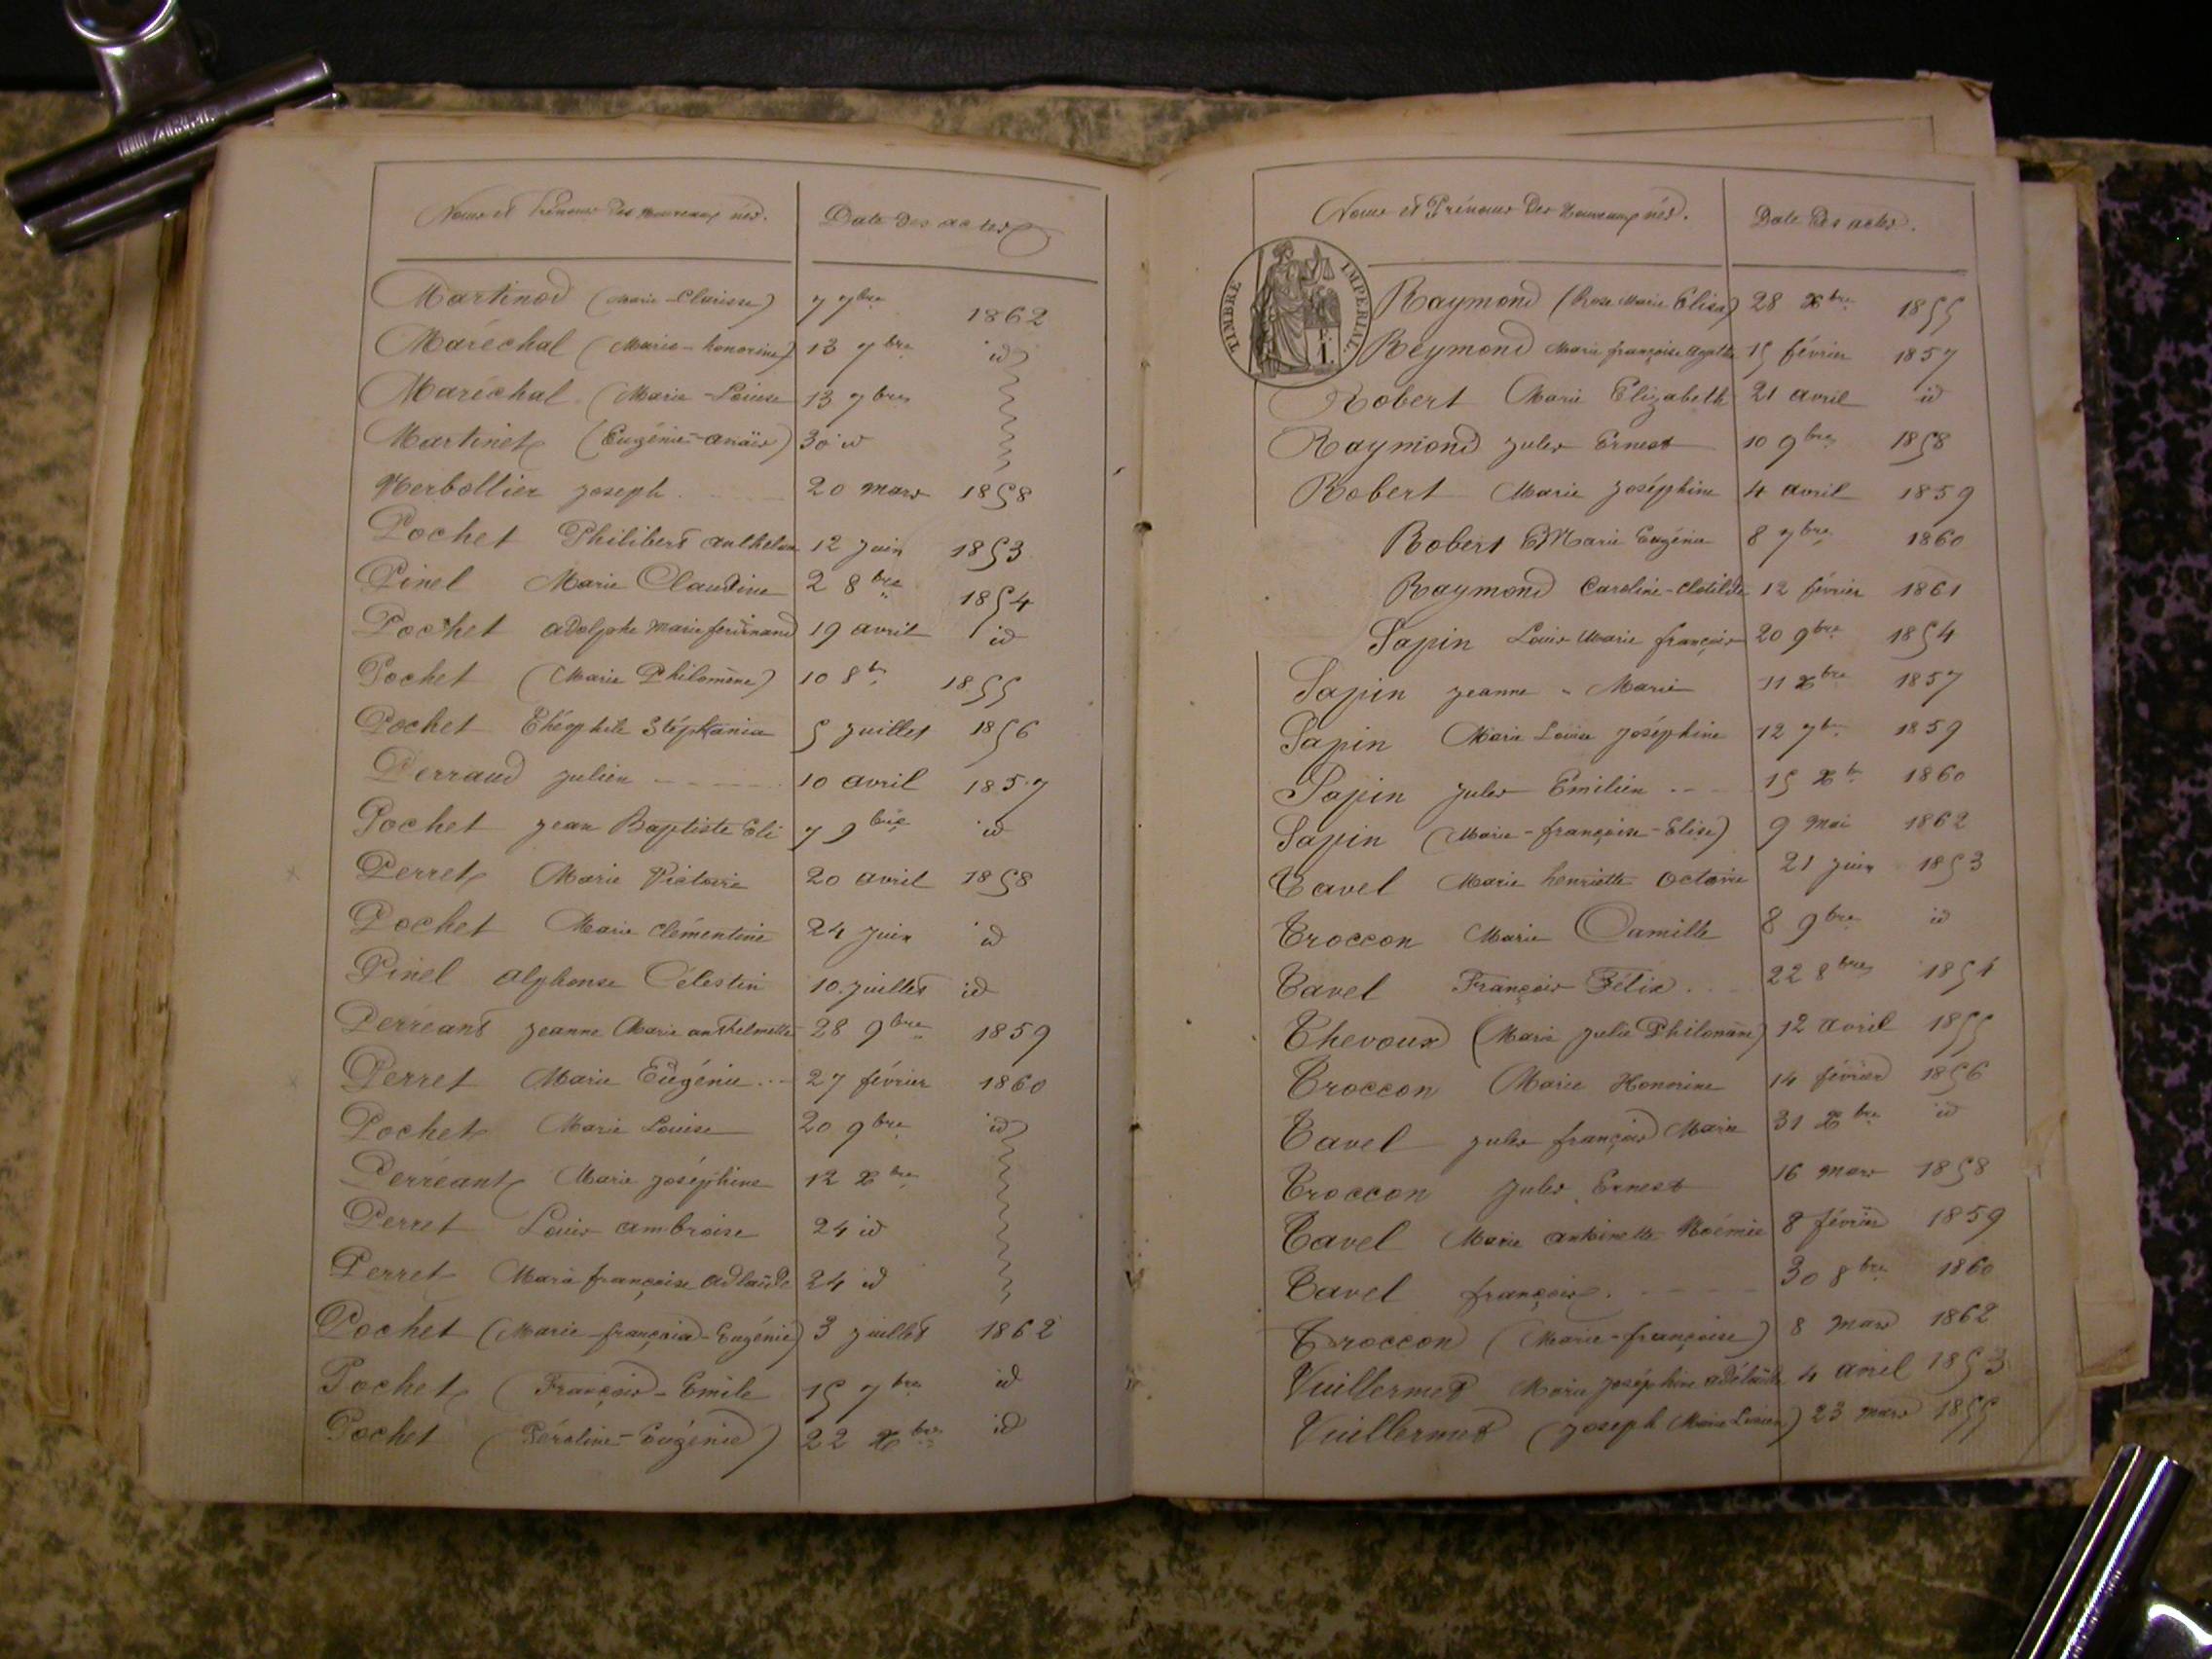 Noms et Prénoms des nouveaux nés. Date des actes
Martinod (Marie-Clarisse) 7 7bre 1862
Maréchal (Marie-honorine) 13 7bre id
Maréchal (Marie-Louise 13 7bre
Martinet (Eugénie-anaïs) 30 id
Merbollier joseph 20 mars 1858
Pochet Philibert anthelme 12 juin 1853
Pinel Marie Claudine 2 8bre 1854
Pochet adolphe marie ferdinand 19 avril id
Pochet (Marie Philomène) 10 8b. 1855
Pochet Théophile Stéphanie 5 juillet 1856
Perraud julien 10 avril 1857
Pochet jean Baptiste Eli 7 9bre id
Perret Marie Victoire 20 avril 1858
Pochet Marie clémentine 24 juin id
Pinel alphonse Célestin 10 juillet id
Perréant jeanne Marie anthelmette 28 9bre 1859
Perret Marie Eugénie 27 février 1860
Pochet Marie Louise 20 9bre id
Perréant Marie joséphine 12 Xbre
Perret Louis ambroise 24 id
Perret Marie françoise adlaïde 24 id
Pochet (Marie-françoise-Eugénie) 3 juillet 1862
Pochet (François-Emile 15 7bre id
Pochet (Péroline-Eugénie) 22 Xbre id
Noms et Prénoms des nouveaux nés. Date des actes.
TIMBRE IMPERIAL
F. 1.
Raymond (Rose Marie Elisa) 28 Xbre 1855
Reymond Marie françoise agathe 15 février 1857
Robert Marie Elizabeth 21 avril id
Raymond jules Ernest 10 9bre 1858
Robert Marie joséphine 4 avril 1859
Robert Marie Eugénie 8 7bre 1860
Raymond Caroline-clotilde 12 février 1861
Sapin Louis Marie françois 20 9bre 1854
Sapin jeanne-Marie 11 Xbre 1857
Sapin Marie Louise joséphine 12 7b. 1859
Sapin jules Emilien 15 Xb. 1860
Sapin (Marie-françoise-Elise) 9 mai 1862
Tavel Marie henriette octavie 21 juin 1853
Troccon Marie Camille 8 9bre id
Tavel François Félix 22 8bre 1854
Thevoux (Marie julie Philomène) 12 avril 1855
Troccon Marie Honorine 14 février 1856
Tavel jules françois Marie 31 Xbre id
Troccon jules Ernest 16 mars 1858
Tavel Marie antoinette Noémie 8 février 1859
Tavel françois 30 8bre 1860
Troccon (Marie-françoise) 8 mars 1862
Vuillermet Marie joséphine adélaïde 4 avril 1853
Vuillermet (joseph Marie Lucien) 23 mars 1855